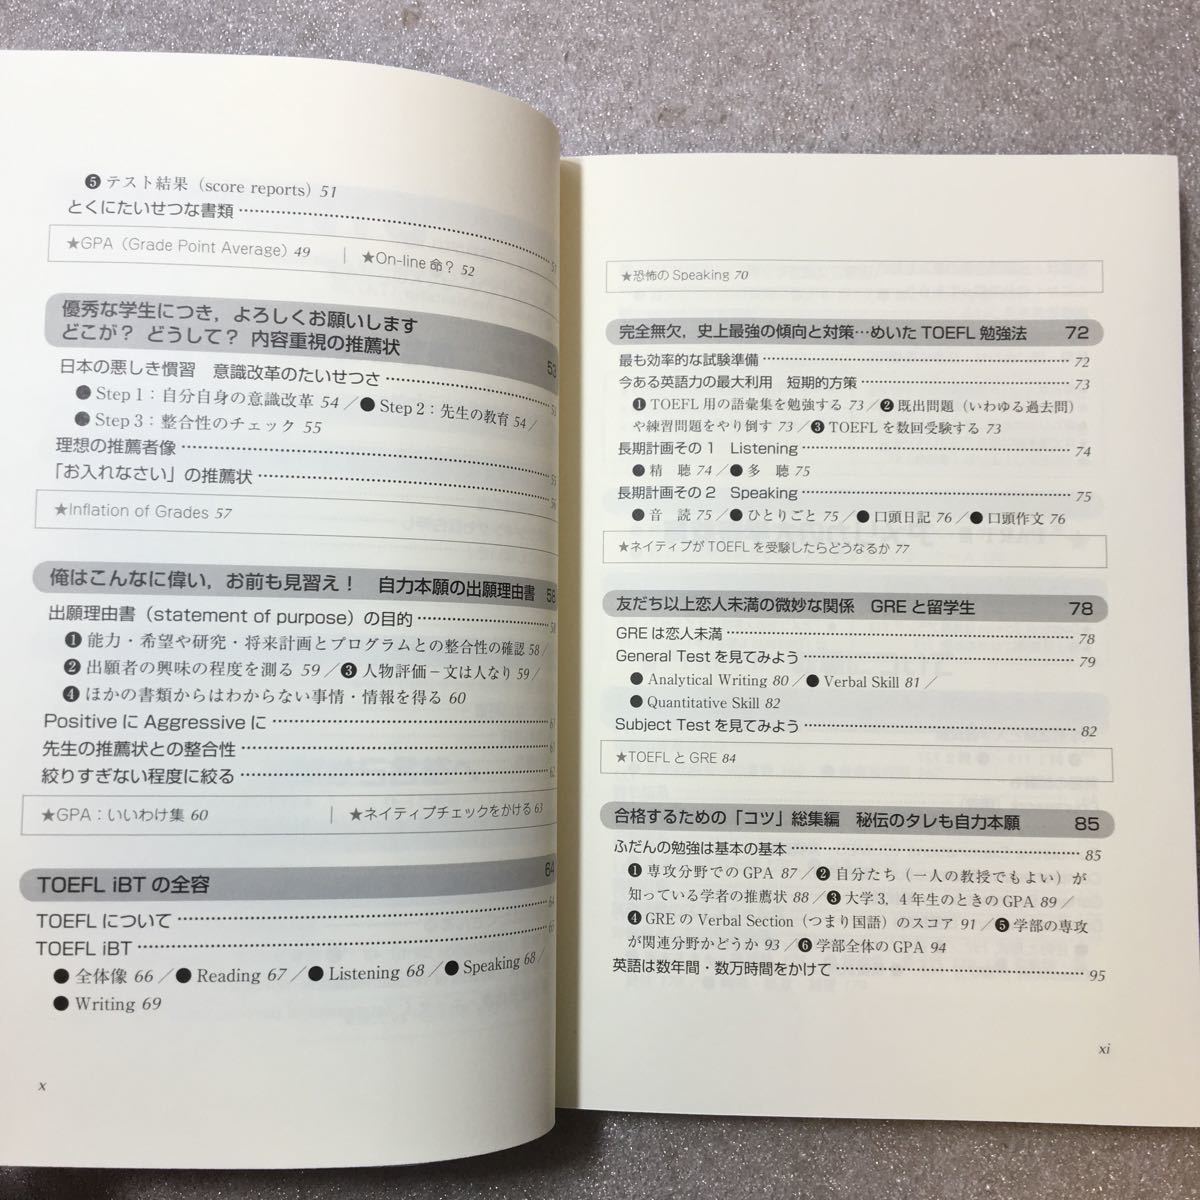 ❺ テスト結果（score reports）51
とくにたいせつな書類 …… 51
★GPA（Grade Point Average）49 ｜ ★On-line 命？ 52
優秀な学生につき，よろしくお願いします
どこが？ どうして？ 内容重視の推薦状 53
日本の悪しき慣習　意識改革のたいせつさ …… 53
● Step 1：自分自身の意識改革 54 ／● Step 2：先生の教育 54 ／
● Step 3：整合性のチェック 55
理想の推薦者像 …… 55
「お入れなさい」の推薦状 …… 56
★Inflation of Grades 57
俺はこんなに偉い，お前も見習え！　自力本願の出願理由書 58
出願理由書（statement of purpose）の目的 …… 58
❶ 能力・希望や研究・将来計画とプログラムとの整合性の確認 58 ／
❷ 出願者の興味の程度を測る 59 ／❸ 人物評価－文は人なり 59 ／
❹ ほかの書類からはわからない事情・情報を得る 60
Positive に Aggressive に …… 61
先生の推薦状との整合性 …… 61
絞りすぎない程度に絞る …… 62
★GPA：いいわけ集 60 ｜ ★ネイティブチェックをかける 63
TOEFL iBT の全容 64
TOEFL について …… 64
TOEFL iBT …… 65
● 全体像 66 ／● Reading 67 ／● Listening 68 ／● Speaking 68 ／
● Writing 69
x
★恐怖の Speaking 70
完全無欠，史上最強の傾向と対策…めいた TOEFL 勉強法 72
最も効率的な試験準備 …… 72
今ある英語力の最大利用　短期的方策 …… 73
❶ TOEFL 用の語彙集を勉強する 73 ／❷ 既出問題（いわゆる過去問）
や練習問題をやり倒す 73 ／❸ TOEFL を数回受験する 73
長期計画その 1　Listening …… 74
● 精　聴 74 ／● 多　聴 75
長期計画その 2　Speaking …… 75
● 音　読 75 ／● ひとりごと 75 ／● 口頭日記 76 ／● 口頭作文 76
★ネイティブが TOEFL を受験したらどうなるか 77
友だち以上恋人未満の微妙な関係　GRE と留学生 78
GRE は恋人未満 …… 78
General Test を見てみよう …… 79
● Analytical Writing 80 ／● Verbal Skill 81 ／
● Quantitative Skill 82
Subject Test を見てみよう …… 82
★TOEFL と GRE 84
合格するための「コツ」総集編　秘伝のタレも自力本願 85
ふだんの勉強は基本の基本 …… 85
❶ 専攻分野での GPA 87 ／❷ 自分たち（一人の教授でもよい）が
知っている学者の推薦状 88 ／❸ 大学3，4年生のときの GPA 89 ／
❹ GRE の Verbal Section（つまり国語）のスコア 91 ／❺ 学部の専攻
が関連分野かどうか 93 ／❻ 学部全体の GPA 94
英語は数年間・数万時間をかけて …… 95
xi